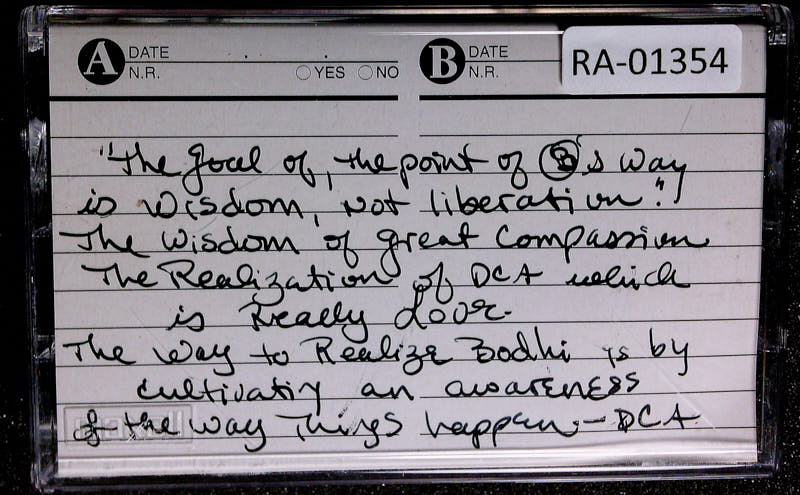 A DATE
N.R. YES NO
B DATE
N.R.
RA-01354
"The goal of, the point of Ⓑ's way
is wisdom, not liberation."
The wisdom of great compassion
The Realization of DCA which
is Really
The way to Realize Bodhi is by
cultivating an awareness
of the way Things happen – DCA
maxell